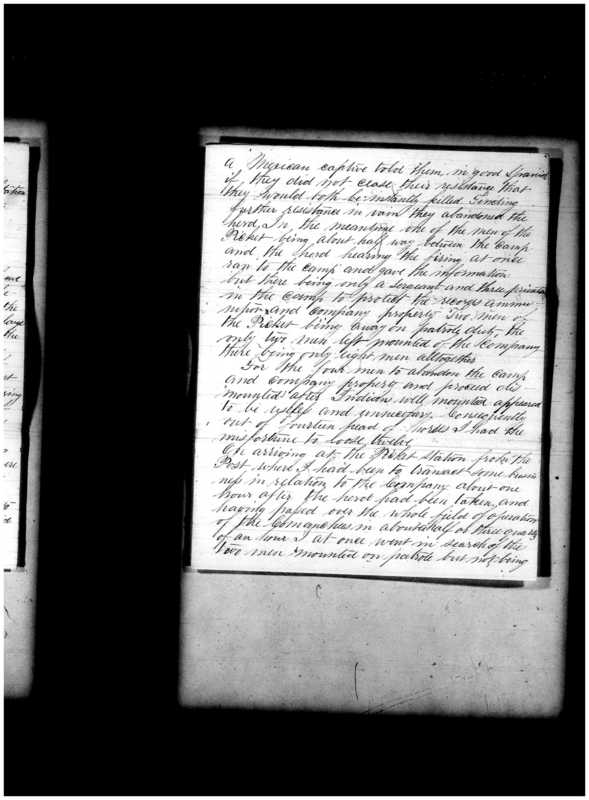 A Mexican captive told them in good Spanish
if they did not cease their resistance that
they would both be instantly killed. Finding
further resistance in vain they abandoned the
herd, In the meantime one of the men of the
Picket being about half way between the camp
and the herd hearing the firing at once
ran to the camp and gave the information
but there being only a Sergeant and three privates
in the camp to protect the records ammu
nition and company property Two men of
the Picket being away on patrole duty, the
only two men left mounted of the Company
there being only eight men alltogether
For the four men to abandon the camp
and company property and proceed dis
mounted after Indians well mounted appeared
to be useless and unnecessary. Consequently
out of fourteen head of horses I had the
misfortune to loose twelve
On arriving at the Picket station from the
Post where I had been to transact some busi
ness in relation to the Company about one
hour after the herd had been taken, and
having passed over the whole field of operation
of the Comanches in about half or three quarters
of an hour I at once went in search of the
two men mounted on patrole but not being
the